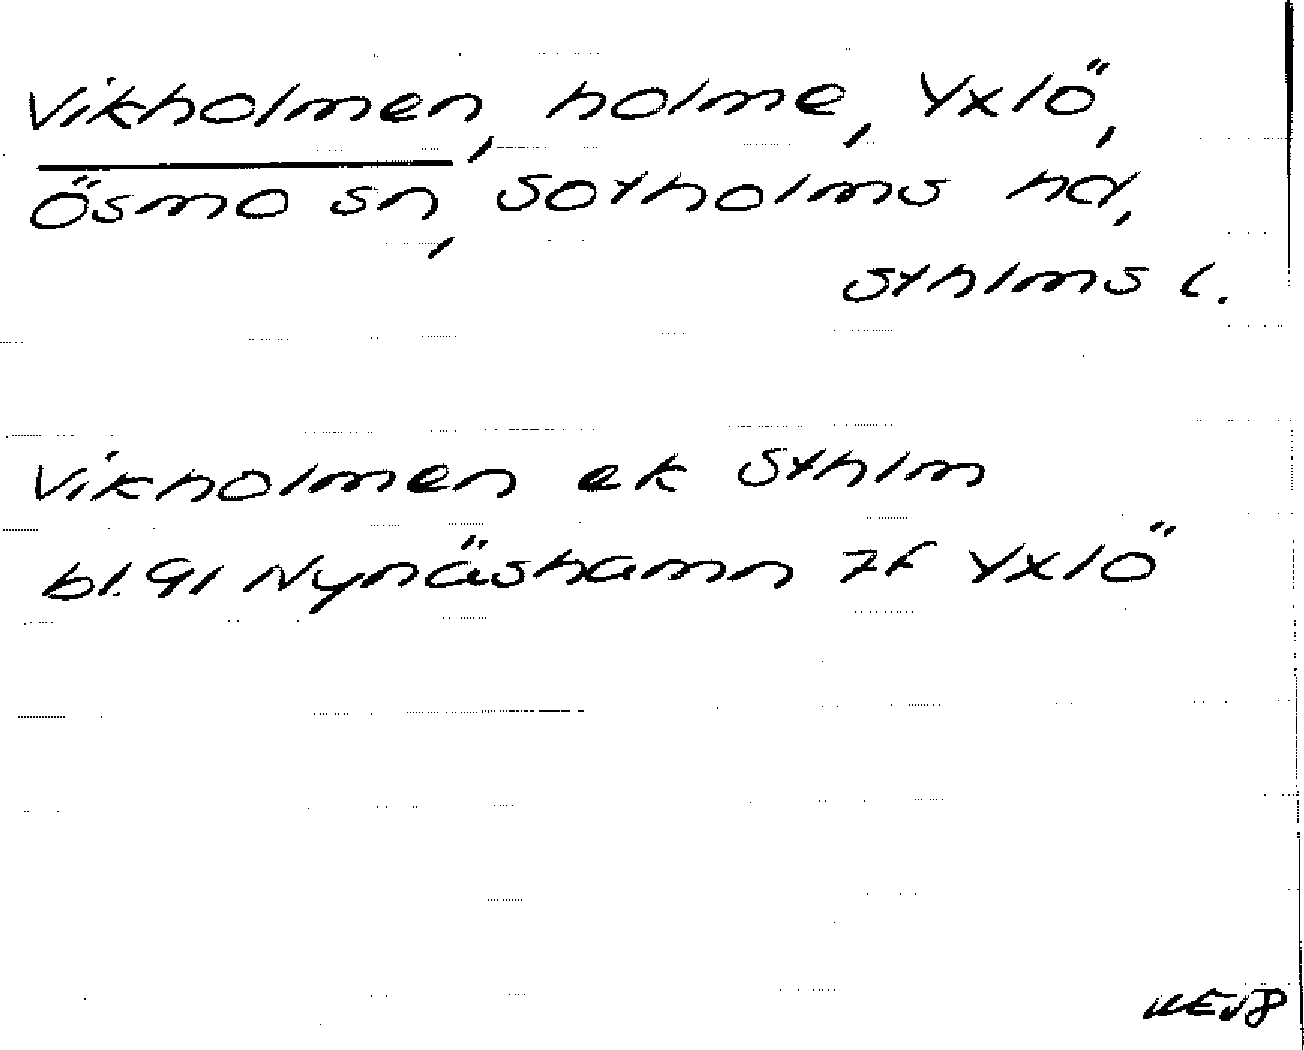 Vikholmen, holme, Yxlö,
Ösmo sn, Sotholms hd,
Sthlms l.
Vikholmen ek Sthlm
bl. 91 Nynäshamn 7f Yxlö